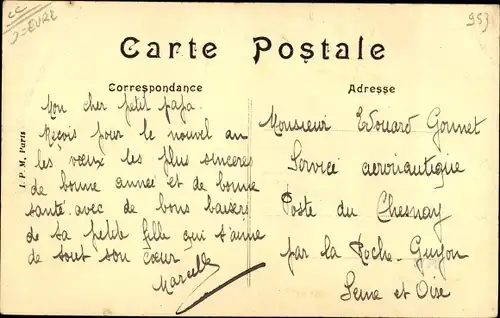 953
Carte Postale
Correspondance
Mon cher petit papa.
Reçois pour le nouvel an
les vœux les plus sincères
de bonne année et de bonne
santé avec de bons baisers
de ta petite fille qui t'aime
de tout son cœur.
Marcelle
I. P. M. Paris
Adresse
Monsieur Edouard Gonnet
Service aéronautique
Poste du Chesnay
par la Roche-Guyon
Seine et Oise